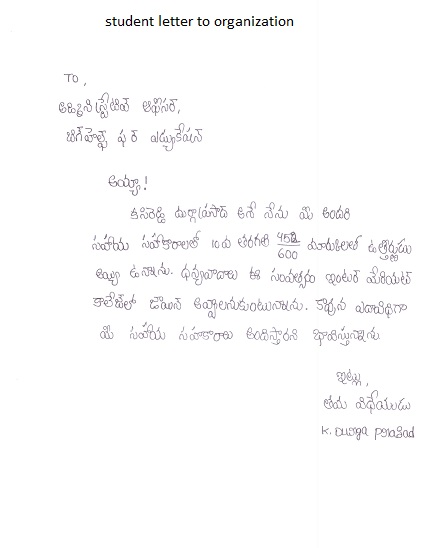 student letter to organization
TO,
అడ్మినిస్ట్రేటివ్ ఆఫీసర్,
బిగ్‌హెల్ప్ ఫర్ ఎడ్యుకేషన్
అయ్యా!
కసిరెడ్డి దుర్గాప్రసాద్ అనే నేను మీ అందరి
సహాయ సహకారాలతో 10వ తరగతి 452/600 మార్కులలో ఉత్తీర్ణుడు
అయ్యి ఉన్నాను. ధన్యవాదాలు ఈ సంవత్సరం ఇంటర్ మేరియట్
కాలేజీలో జాయిన్ అవ్వాలనుకుంటున్నాను. కావున ఎదావిధిగా
మీ సహాయ సహకారాలు అందిస్తారని భావిస్తున్నాను
ఇట్లు,
తమ విధేయుడు
K. Durga prasad